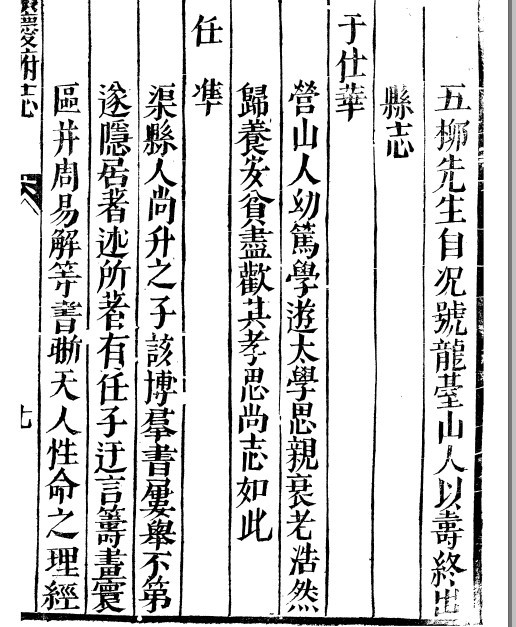 五柳先生自况號龍臺山人以壽終出
縣志
于仕華
營山人幼篤學遊太學思親衰老浩然
歸養安貧盡歡其孝思尚志如此
任準
渠縣人尚升之子該博羣書屢舉不第
遂隱居著述所著有任子迂言籌畫寰
區并周易解等書晰天人性命之理經
慶府志
七